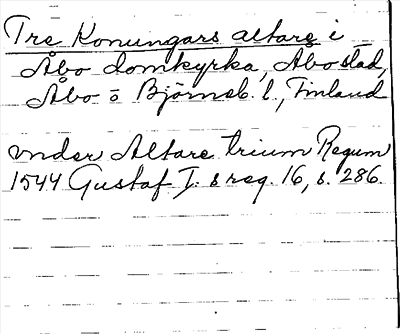 Tre Konungars altare i
Åbo domkyrka, Åbo stad,
Åbo- o Björneb. l., Finland
vnder Altare trium Regum
1544 Gustaf I:s reg. 16, s. 286.